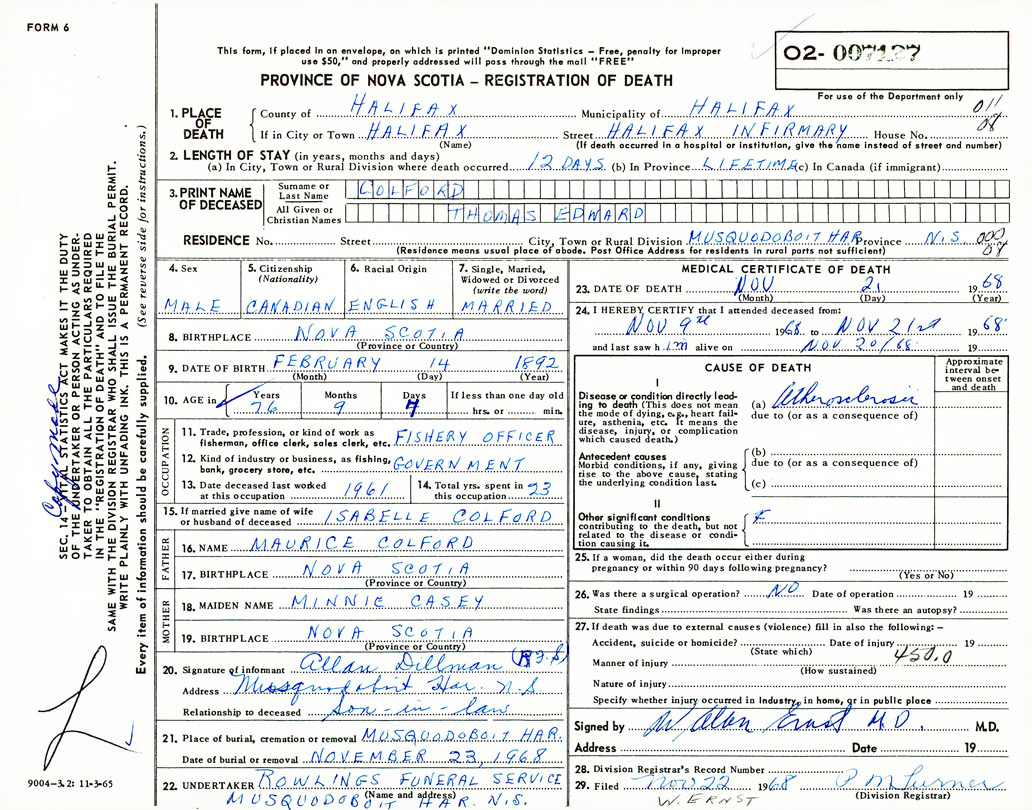 FORM 6
This form, if placed in an envelope, on which is printed "Dominion Statistics – Free, penalty for improper
use $50," and properly addressed will pass through the mail "FREE"
PROVINCE OF NOVA SCOTIA – REGISTRATION OF DEATH
02- 007127
For use of the Department only
1. PLACE OF DEATH
County of HALIFAX Municipality of HALIFAX 011
If in City or Town HALIFAX Street HALIFAX INFIRMARY House No. 08
(Name) (If death occurred in a hospital or institution, give the name instead of street and number)
2. LENGTH OF STAY (in years, months and days)
(a) In City, Town or Rural Division where death occurred 12 DAYS (b) In Province LIFETIME (c) In Canada (if immigrant)
3. PRINT NAME OF DECEASED
Surname or Last Name COLFORD
All Given or Christian Names THOMAS EDWARD
RESIDENCE No. Street City, Town or Rural Division MUSQUODOBOIT HAR Province N.S. 000
08
(Residence means usual place of abode. Post Office Address for residents in rural parts not sufficient)
4. Sex
MALE
5. Citizenship
(Nationality)
CANADIAN
6. Racial Origin
ENGLISH
7. Single, Married,
Widowed or Divorced
(write the word)
MARRIED
8. BIRTHPLACE NOVA SCOTIA
(Province or Country)
9. DATE OF BIRTH FEBRUARY 14 1892
(Month) (Day) (Year)
10. AGE in Years Months Days If less than one day old
76 9 7 hrs. or min.
OCCUPATION
11. Trade, profession, or kind of work as
fisherman, office clerk, sales clerk, etc. FISHERY OFFICER
12. Kind of industry or business, as fishing,
bank, grocery store, etc. GOVERNMENT
13. Date deceased last worked
at this occupation 1961
14. Total yrs. spent in
this occupation 23
15. If married give name of wife
or husband of deceased ISABELLE COLFORD
FATHER
16. NAME MAURICE COLFORD
17. BIRTHPLACE NOVA SCOTIA
(Province or Country)
MOTHER
18. MAIDEN NAME MINNIE CASEY
19. BIRTHPLACE NOVA SCOTIA
(Province or Country)
20. Signature of informant Allan Dillman
Address Musquodoboit Har. N.S.
Relationship to deceased Son-in-law
21. Place of burial, cremation or removal MUSQUODOBOIT HAR.
Date of burial or removal NOVEMBER 23, 1968
22. UNDERTAKER ROWLINGS FUNERAL SERVICE
(Name and address)
MUSQUODOBOIT HAR. N.S.
MEDICAL CERTIFICATE OF DEATH
23. DATE OF DEATH NOV 21 1968
(Month) (Day) (Year)
24. I HEREBY CERTIFY that I attended deceased from:
NOV 9th 1968 to NOV 21st 1968
and last saw him alive on NOV 20/68 19
CAUSE OF DEATH
Approximate interval between onset and death
I
Disease or condition directly leading to death (This does not mean the mode of dying, e.g., heart failure, asthenia, etc. It means the disease, injury, or complication which caused death.)
(a) Atherosclerosis
due to (or as a consequence of)
Antecedent causes
Morbid conditions, if any, giving
rise to the above cause, stating
the underlying condition last.
(b)
due to (or as a consequence of)
(c)
II
Other significant conditions
contributing to the death, but not
related to the disease or condition causing it.
25. If a woman, did the death occur either during
pregnancy or within 90 days following pregnancy?
(Yes or No)
26. Was there a surgical operation? NO Date of operation 19
State findings Was there an autopsy?
27. If death was due to external causes (violence) fill in also the following: –
Accident, suicide or homicide? Date of injury 19
(State which) 450.0
Manner of injury
(How sustained)
Nature of injury
Specify whether injury occurred in industry, in home, or in public place
Signed by W Alan Ernst M.D. M.D.
Address Date 19
28. Division Registrar's Record Number
29. Filed Nov 22 1968
(Division Registrar)
W. ERNST
SEC. 14 – VITAL STATISTICS ACT MAKES IT THE DUTY
OF THE UNDERTAKER OR PERSON ACTING AS UNDER-
TAKER TO OBTAIN ALL THE PARTICULARS REQUIRED
IN THE "REGISTRATION OF DEATH" AND TO FILE THE
SAME WITH THE DIVISION REGISTRAR WHO SHALL ISSUE THE BURIAL PERMIT.
WRITE PLAINLY WITH UNFADING INK. THIS IS A PERMANENT RECORD.
Every item of information should be carefully supplied. (See reverse side for instructions.)
Copy made
9004-3.2: 11-3-65